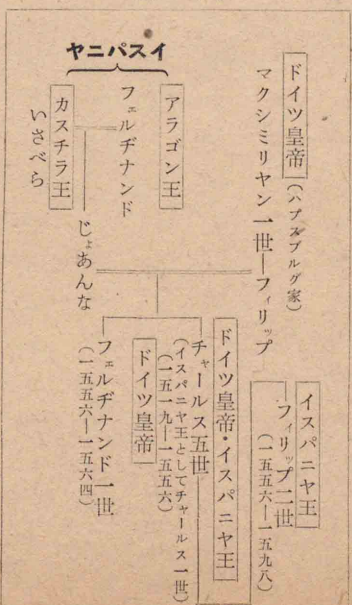 ドイツ皇帝(ハプスブルグ家)
マクシミリヤン一世―フィリップ
イスパニヤ
アラゴン王
フェルヂナンド
カスチラ王
いさべら
じょあんな
イスパニヤ王
フィリップ二世
(一五五六―一五九八)
ドイツ皇帝・イスパニヤ王
チャールス五世
(イスパニヤ王としてチャールス一世)
(一五一九―一五五六)
ドイツ皇帝
フェルヂナンド一世
(一五五六―一五六四)